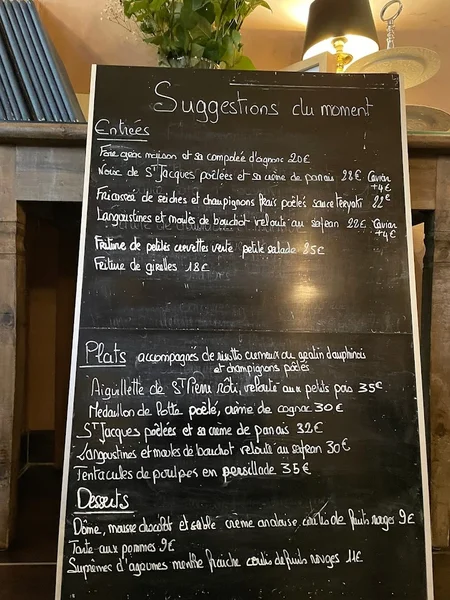 Suggestions du moment
Entrées
Foie gras maison et sa compotée d'agrume 20€
Noix de St Jacques poêlées et sa crème de panais 22€ Caviar +4€
Fricassée de seiches et champignons frais poêlés sauce teriyaki 22€
Langoustines et moules de bouchot velouté au safran 22€ Caviar +4€
Friture de petites crevettes verte petite salade 25€
Friture de girelles 18€
Plats accompagnés de risotto crémeux ou gratin dauphinois
et champignons poêlés
Aiguillette de St Pierre rôti, velouté aux petits pois 35€
Medaillon de Lotte poêlé, crème de cognac 30€
St Jacques poêlées et sa crème de panais 32€
Langoustines et moules de bouchot velouté au safran 30€
Tentacules de poulpes en persillade 35€
Desserts
Dôme, mousse chocolat et sablé crème anglaise coulis de fruits rouges 9€
Tarte aux pommes 9€
Suprêmes d'agrumes menthe fraiche coulis de fruits rouges 11€